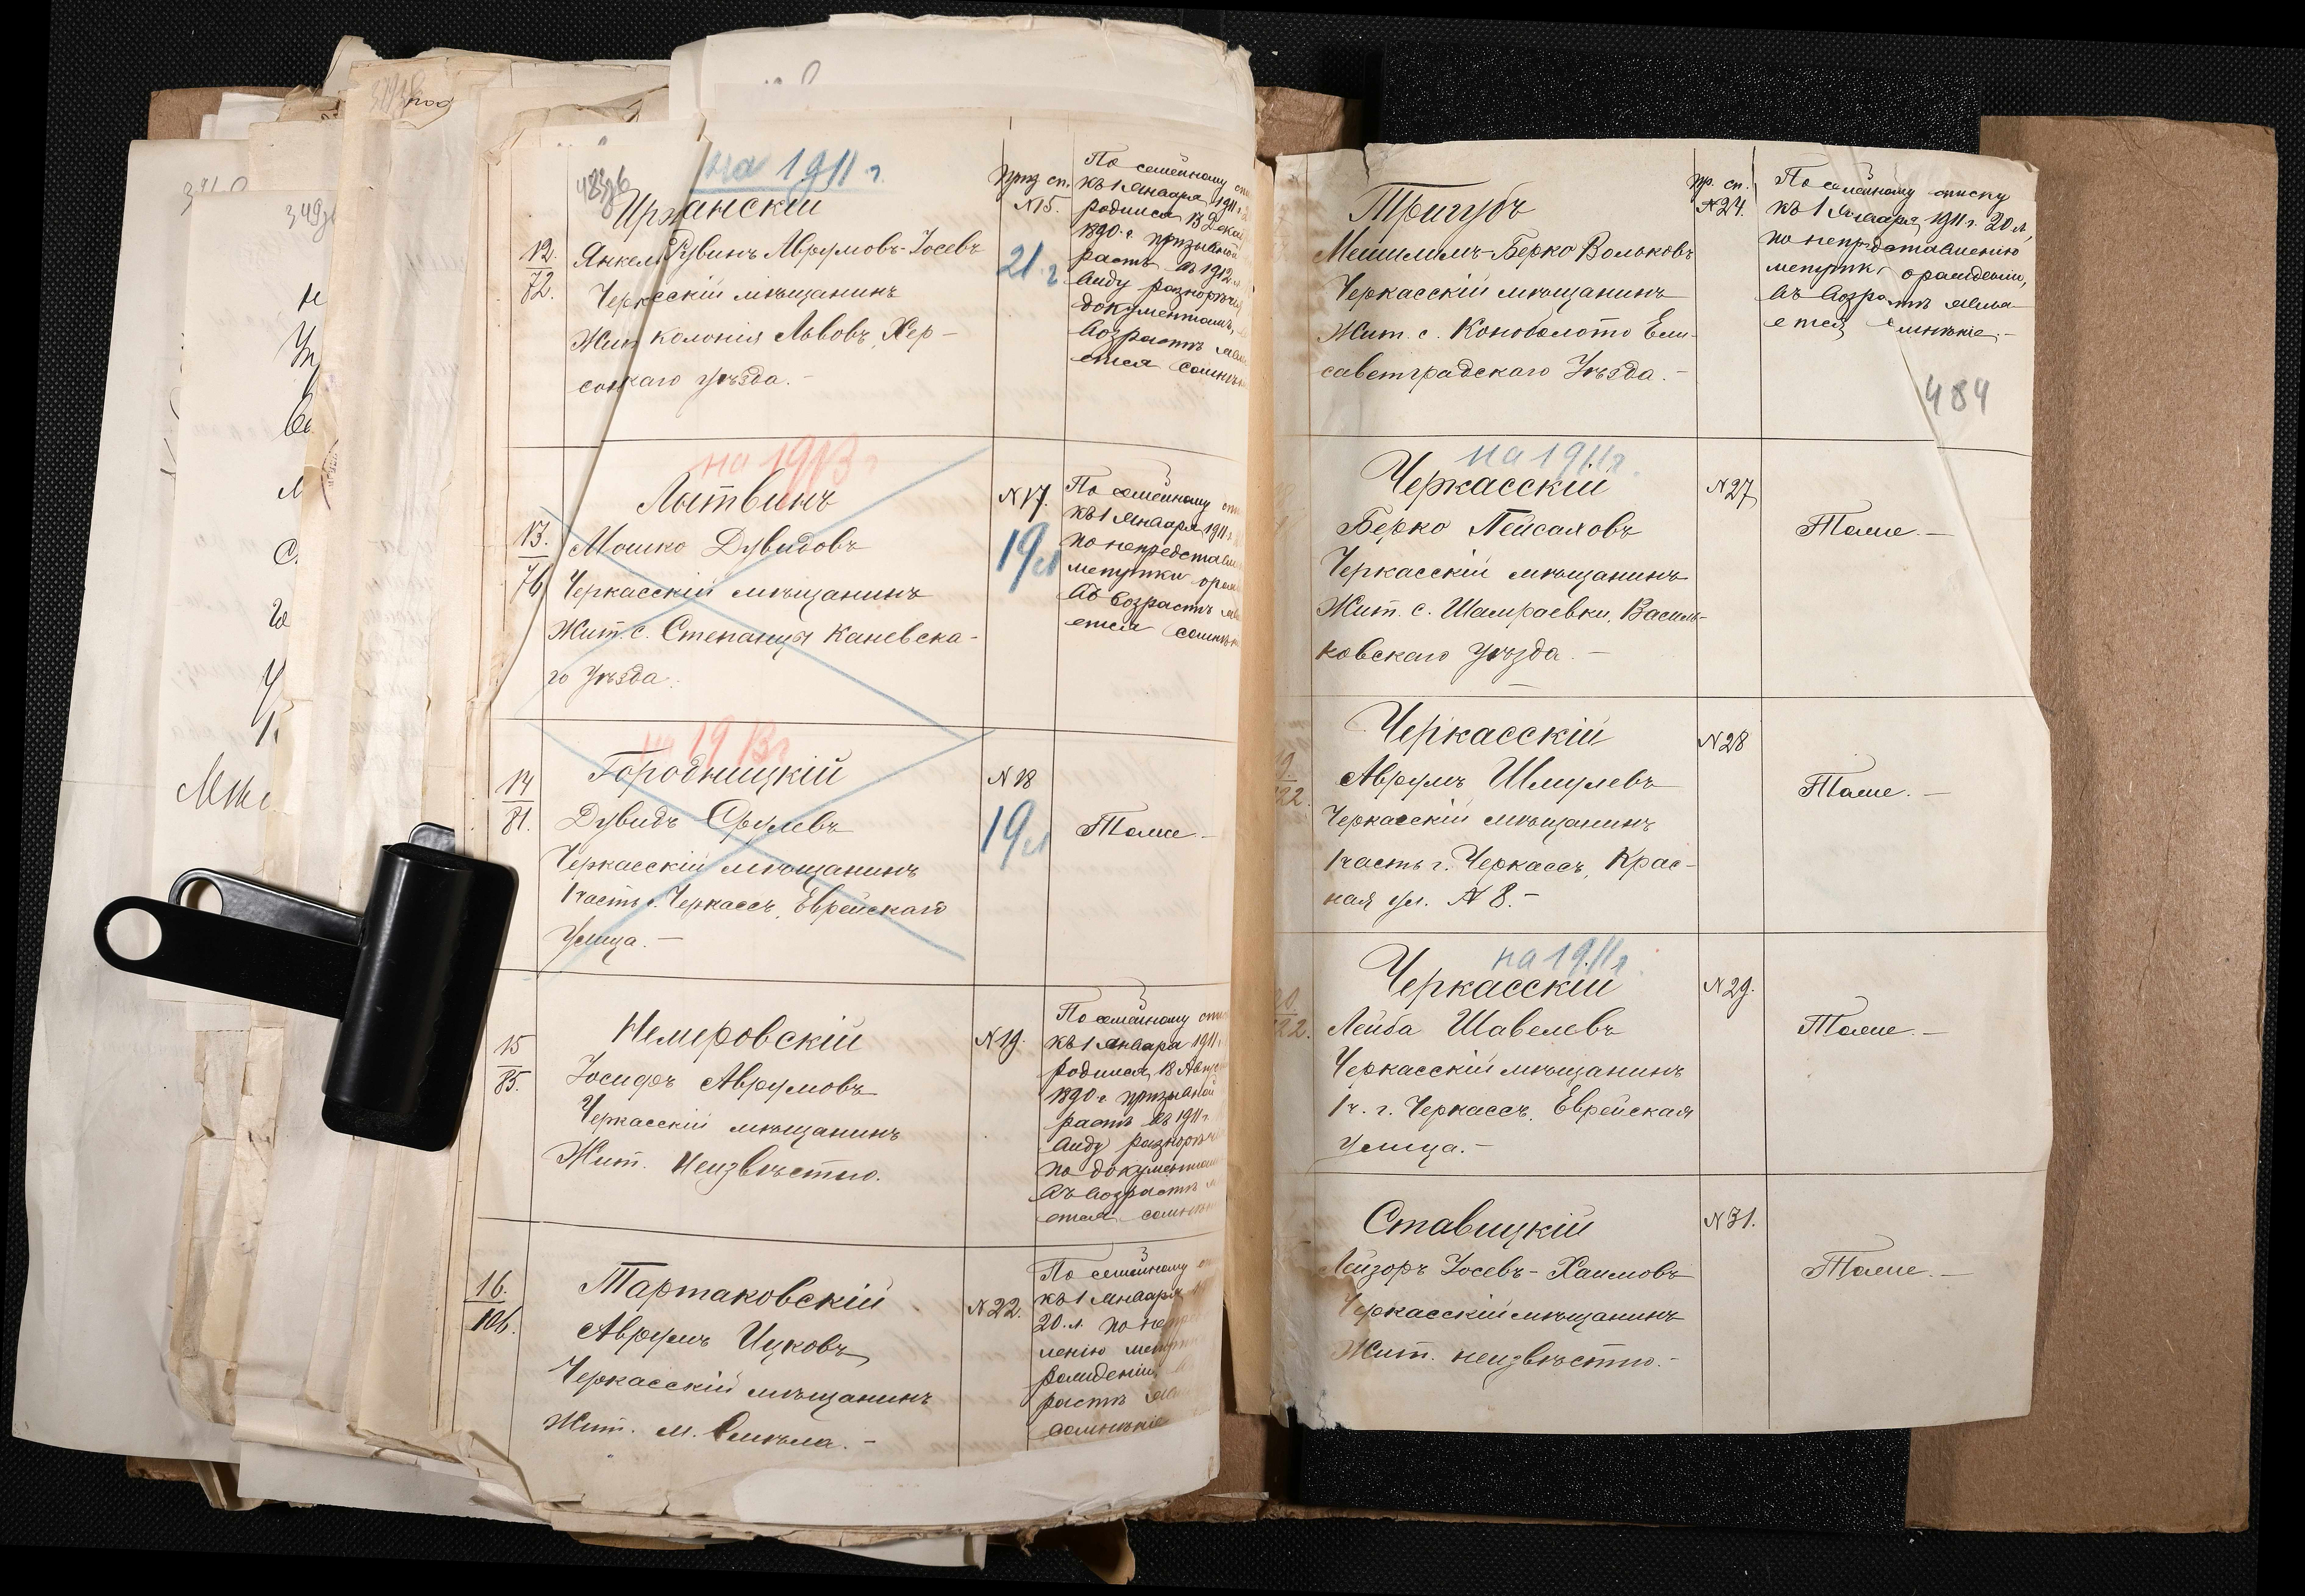 483зв
на 1911 г.
Иржанскій
12.
72.
Янкель Рувинъ Аврумовъ-Іосевъ
Черкасскій мѣщанинъ
Жит колонія Львовъ, Хер-
сонскаго уѣзда.-
приз сп.
№15.
21. г
По семейному
къ 1 Января 1911 г.
родился 13 Дека
1890 г. призывной
растъ въ 1912
виду разнорѣч
документамъ,
возрастъ
ется сомнѣн
на 1913 г
Лытвинъ
13.
76
Мошко Дувидовъ
Черкасскій мѣщанинъ
Жит с. Степанцы Каневска-
го уѣзда.
№17.
19 л
По семейному
къ 1 Января 1911 г.
по непредставл
метрики
въ возрастѣ
ется сомнѣн
на 1913 г
Городницкій
14
81.
Дувидъ Срулевъ
Черкасскій мѣщанинъ
1 часть г. Черкассъ, Еврейская
улица.-
№18
19 л
Тоже.-
Немировскій
15
85.
Іосифъ Аврумовъ
Черкасскій мѣщанинъ
Жит. неизвѣстно.
№19.
По семейному
къ 1 Января 1911
родился 18 Авгу
1890 г призывной
растъ въ 1911 г
виду разнорѣч
по документам
въ возрастѣ
ется сомнѣн
Тартаковскій
16.
106.
Аврумъ Ицковъ
Черкасскій мѣщанинъ
Жит. м. Смѣла.-
№22.
По семейному
къ 1 Января
20. л. по не
ленію метри
рожденіи,
растѣ
сомнѣніе
Тригубъ
Мешилимъ-Берко Вольковъ
Черкасскій мѣщанинъ
Жит. с. Коноболото Ели-
саветградскаго Уѣзда.-
пр. сп.
№24.
По семейному списку
къ 1 Января 1911 г. 20 л,
по непредставленію
метрик о рожденіи,
въ возрастѣ явля
ется сомнѣніе.-
484
на 1911 г.
Черкасскій
Берко Пейсаховъ
Черкасскій мѣщанинъ
Жит. с. Шамраевки, Василь-
ковскаго уѣзда.-
№27
Тоже.-
Черкасскій
22.
Аврумъ Шмулевъ
Черкасскій мѣщанинъ
1 часть г. Черкассъ, Крас-
ная ул. №8.-
№28
Тоже.-
на 1911 г.
Черкасскій
22.
Лейба Шавелевъ
Черкасскій мѣщанинъ
1 ч. г. Черкассъ, Еврейская
улица.-
№29.
Тоже.-
Ставицкій
Лейзоръ Іосевъ-Хаимовъ
Черкасскій мѣщанинъ
Жит. неизвѣстно.-
№31.
Тоже.-